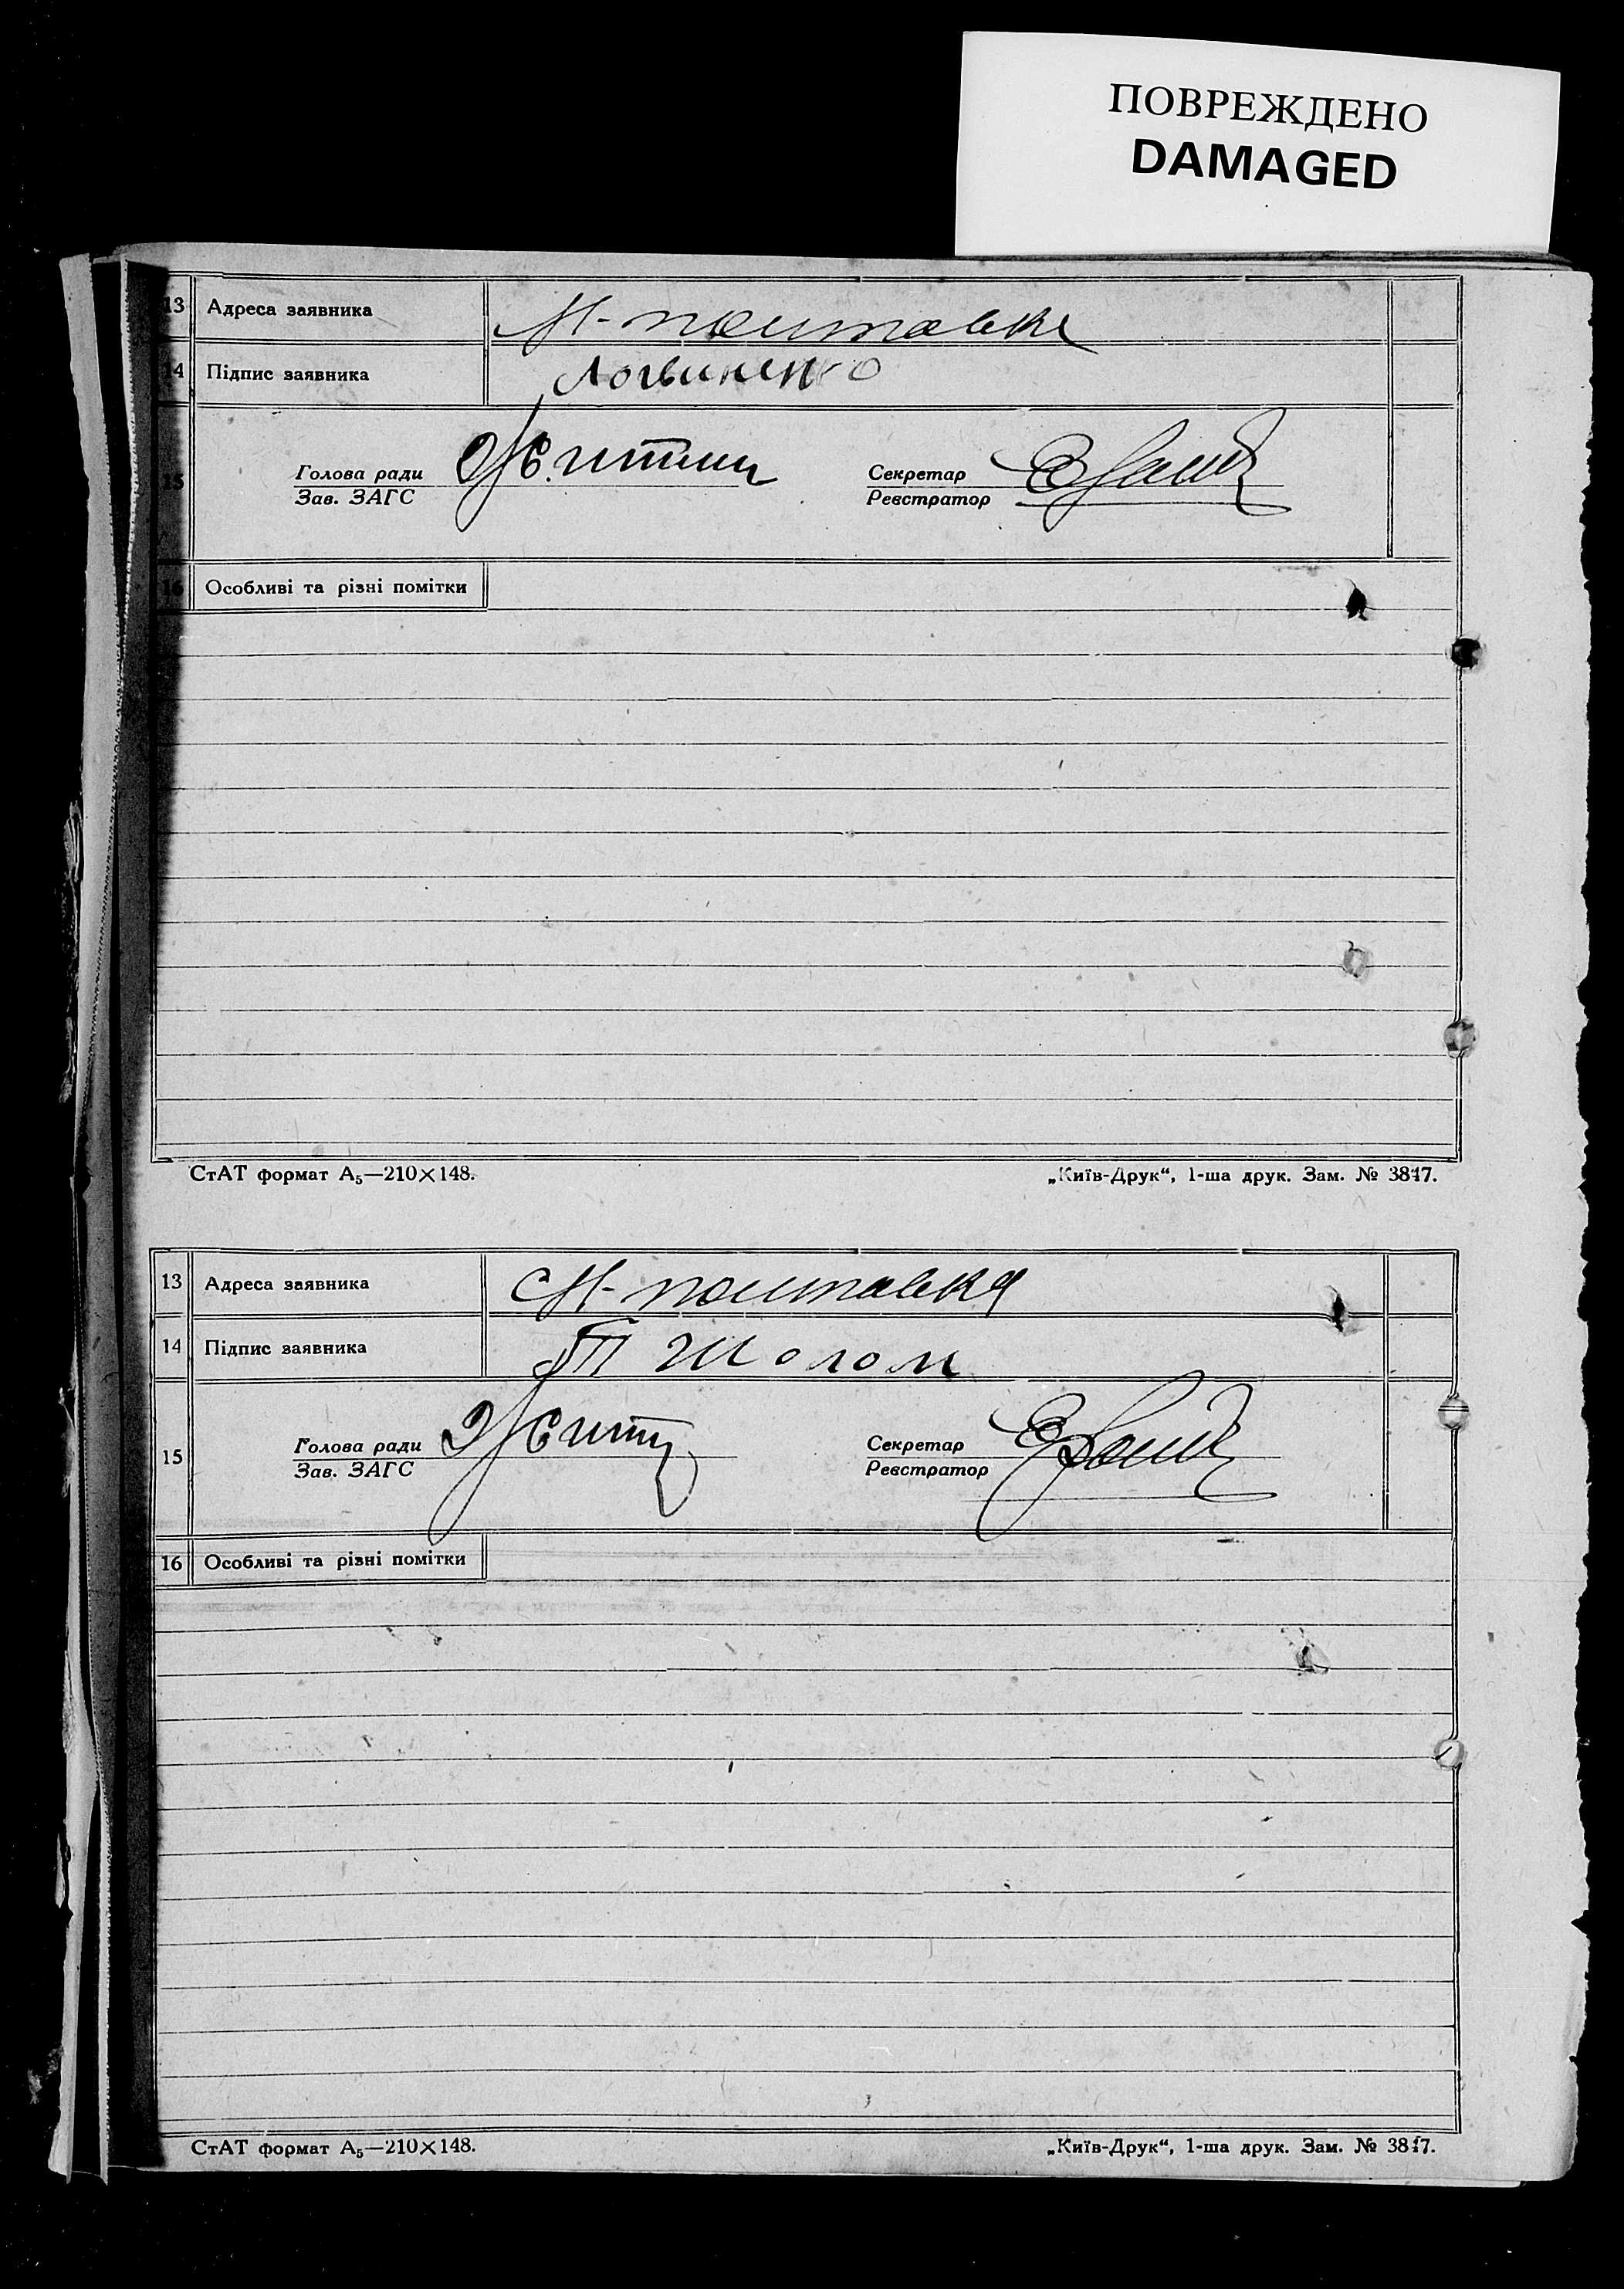 ПОВРЕЖДЕНО
DAMAGED
13 Адреса заявника
14 Підпис заявника Логвиненко
15 Голова ради Секретар
Зав. ЗАГС Реєстратор
16 Особливі та різні помітки
СтАТ формат А₅—210×148. „Київ-Друк“, 1-ша друк. Зам. № 3817.
13 Адреса заявника
14 Підпис заявника Шолом
15 Голова ради Секретар
Зав. ЗАГС Реєстратор
16 Особливі та різні помітки
СтАТ формат А₅—210×148. „Київ-Друк“, 1-ша друк. Зам. № 3817.